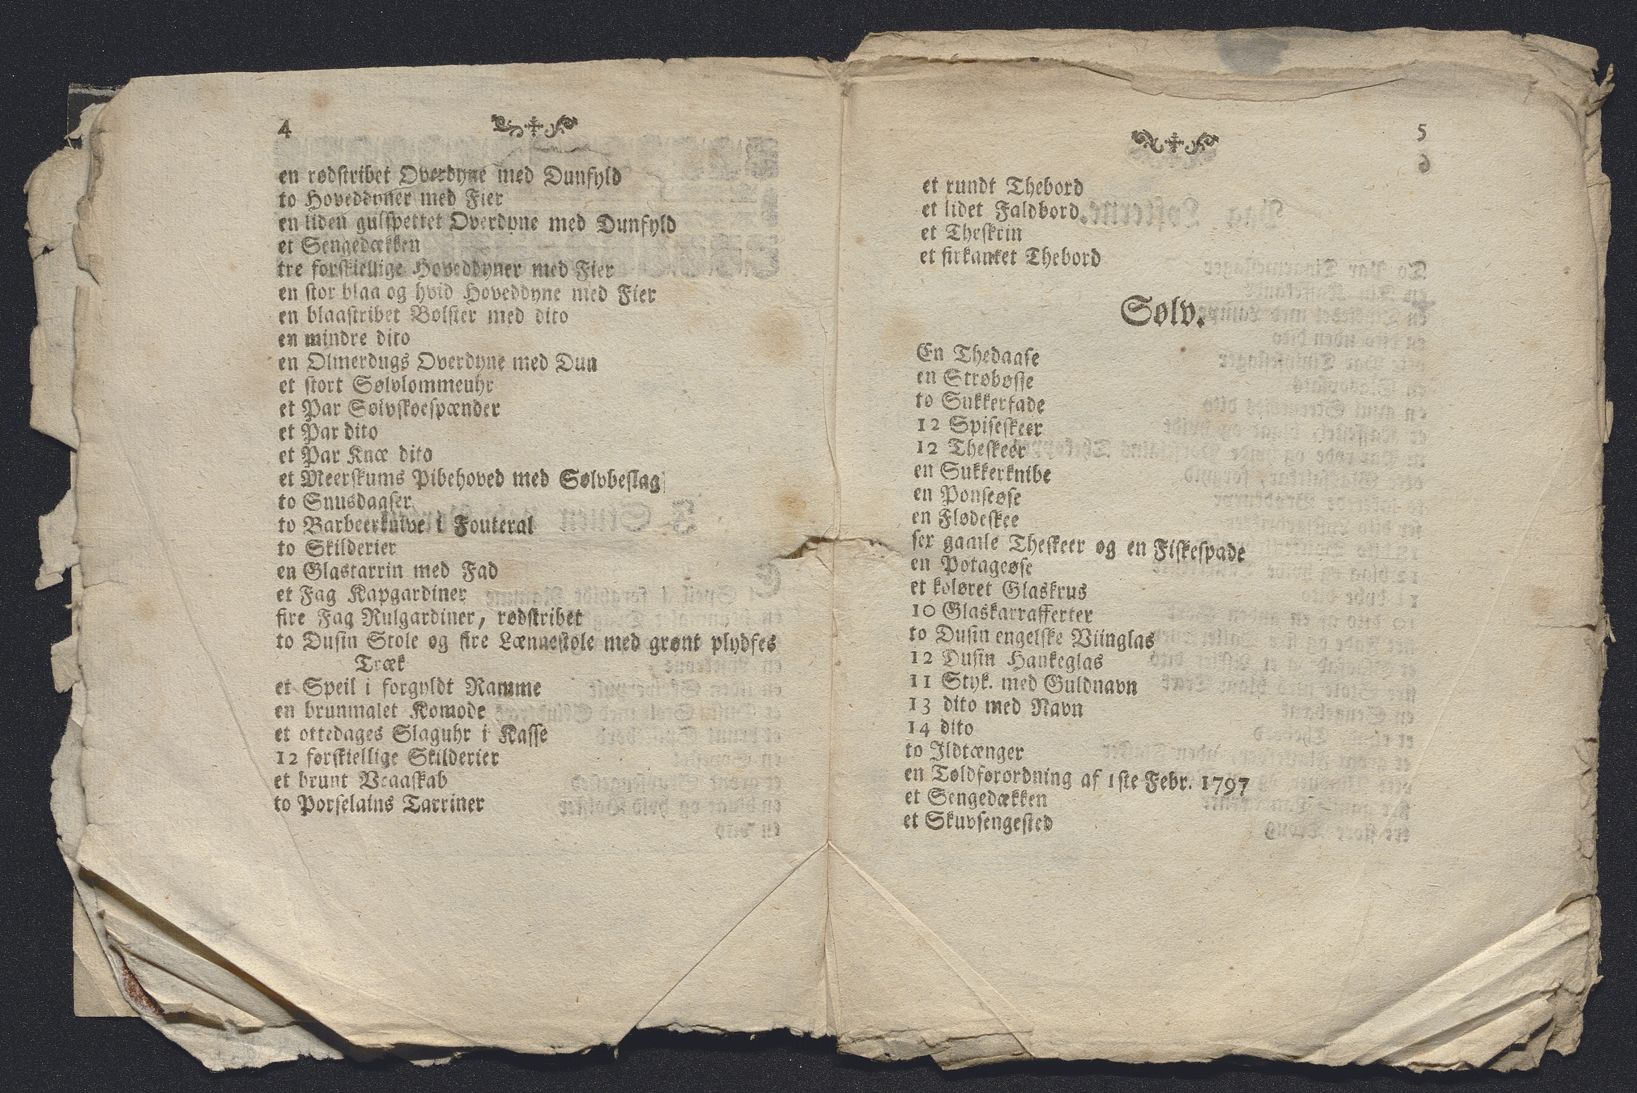 4
en rødstribet Overdyne med Dunfyld
to Hoveddyner med Fier
en liden gulspettet Overdyne med Dunfyld
et Sengedækken
tre forskiellige Hoveddyner med Fier
en stor blaa og hvid Hoveddyne med Fier
en blaastribet Bolster med dito
en mindre dito
en Olmerdugs Overdyne med Dun
et stort Sølvlommeuhr
et Par Sølvskoespænder
et Par dito
et Par Knæ dito
et Meerskums Pibehoved med Sølvbeslag
to Snusdaaser
to Barbeerknive i Fouteral
to Skilderier
en Glastarrin med Fad
et Fag Kapgardiner
fire Fag Rulgardiner, rødstribet
to Dusin Stole og fire Lænnestole med grønt plydses
Træk
et Speil i forgyldt Ramme
en brunmalet Komode
et ottedages Slaguhr i Kasse
12 forskiellige Skilderier
et brunt Vraaskab
to Porselains Tarriner
5
et rundt Thebord
et lidet Faldbord
et Theskrin
et firkantet Thebord
Sølv.
En Thedaase
en Strøbøsse
to Sukkerfade
12 Spiseskeer
12 Theskeer
en Sukkerknibe
en Ponseøse
en Flødeskee
sex gamle Theskeer og en Fiskespade
en Potageøse
et koløret Glaskrus
10 Glaskarrafferter
to Dusin engelske Viinglas
12 Dusin Hankeglas
11 Styk. med Guldnavn
13 dito med Navn
14 dito
to Ildtænger
en Toldforordning af 1ste Febr. 1797
et Sengedækken
et Skuvsengested